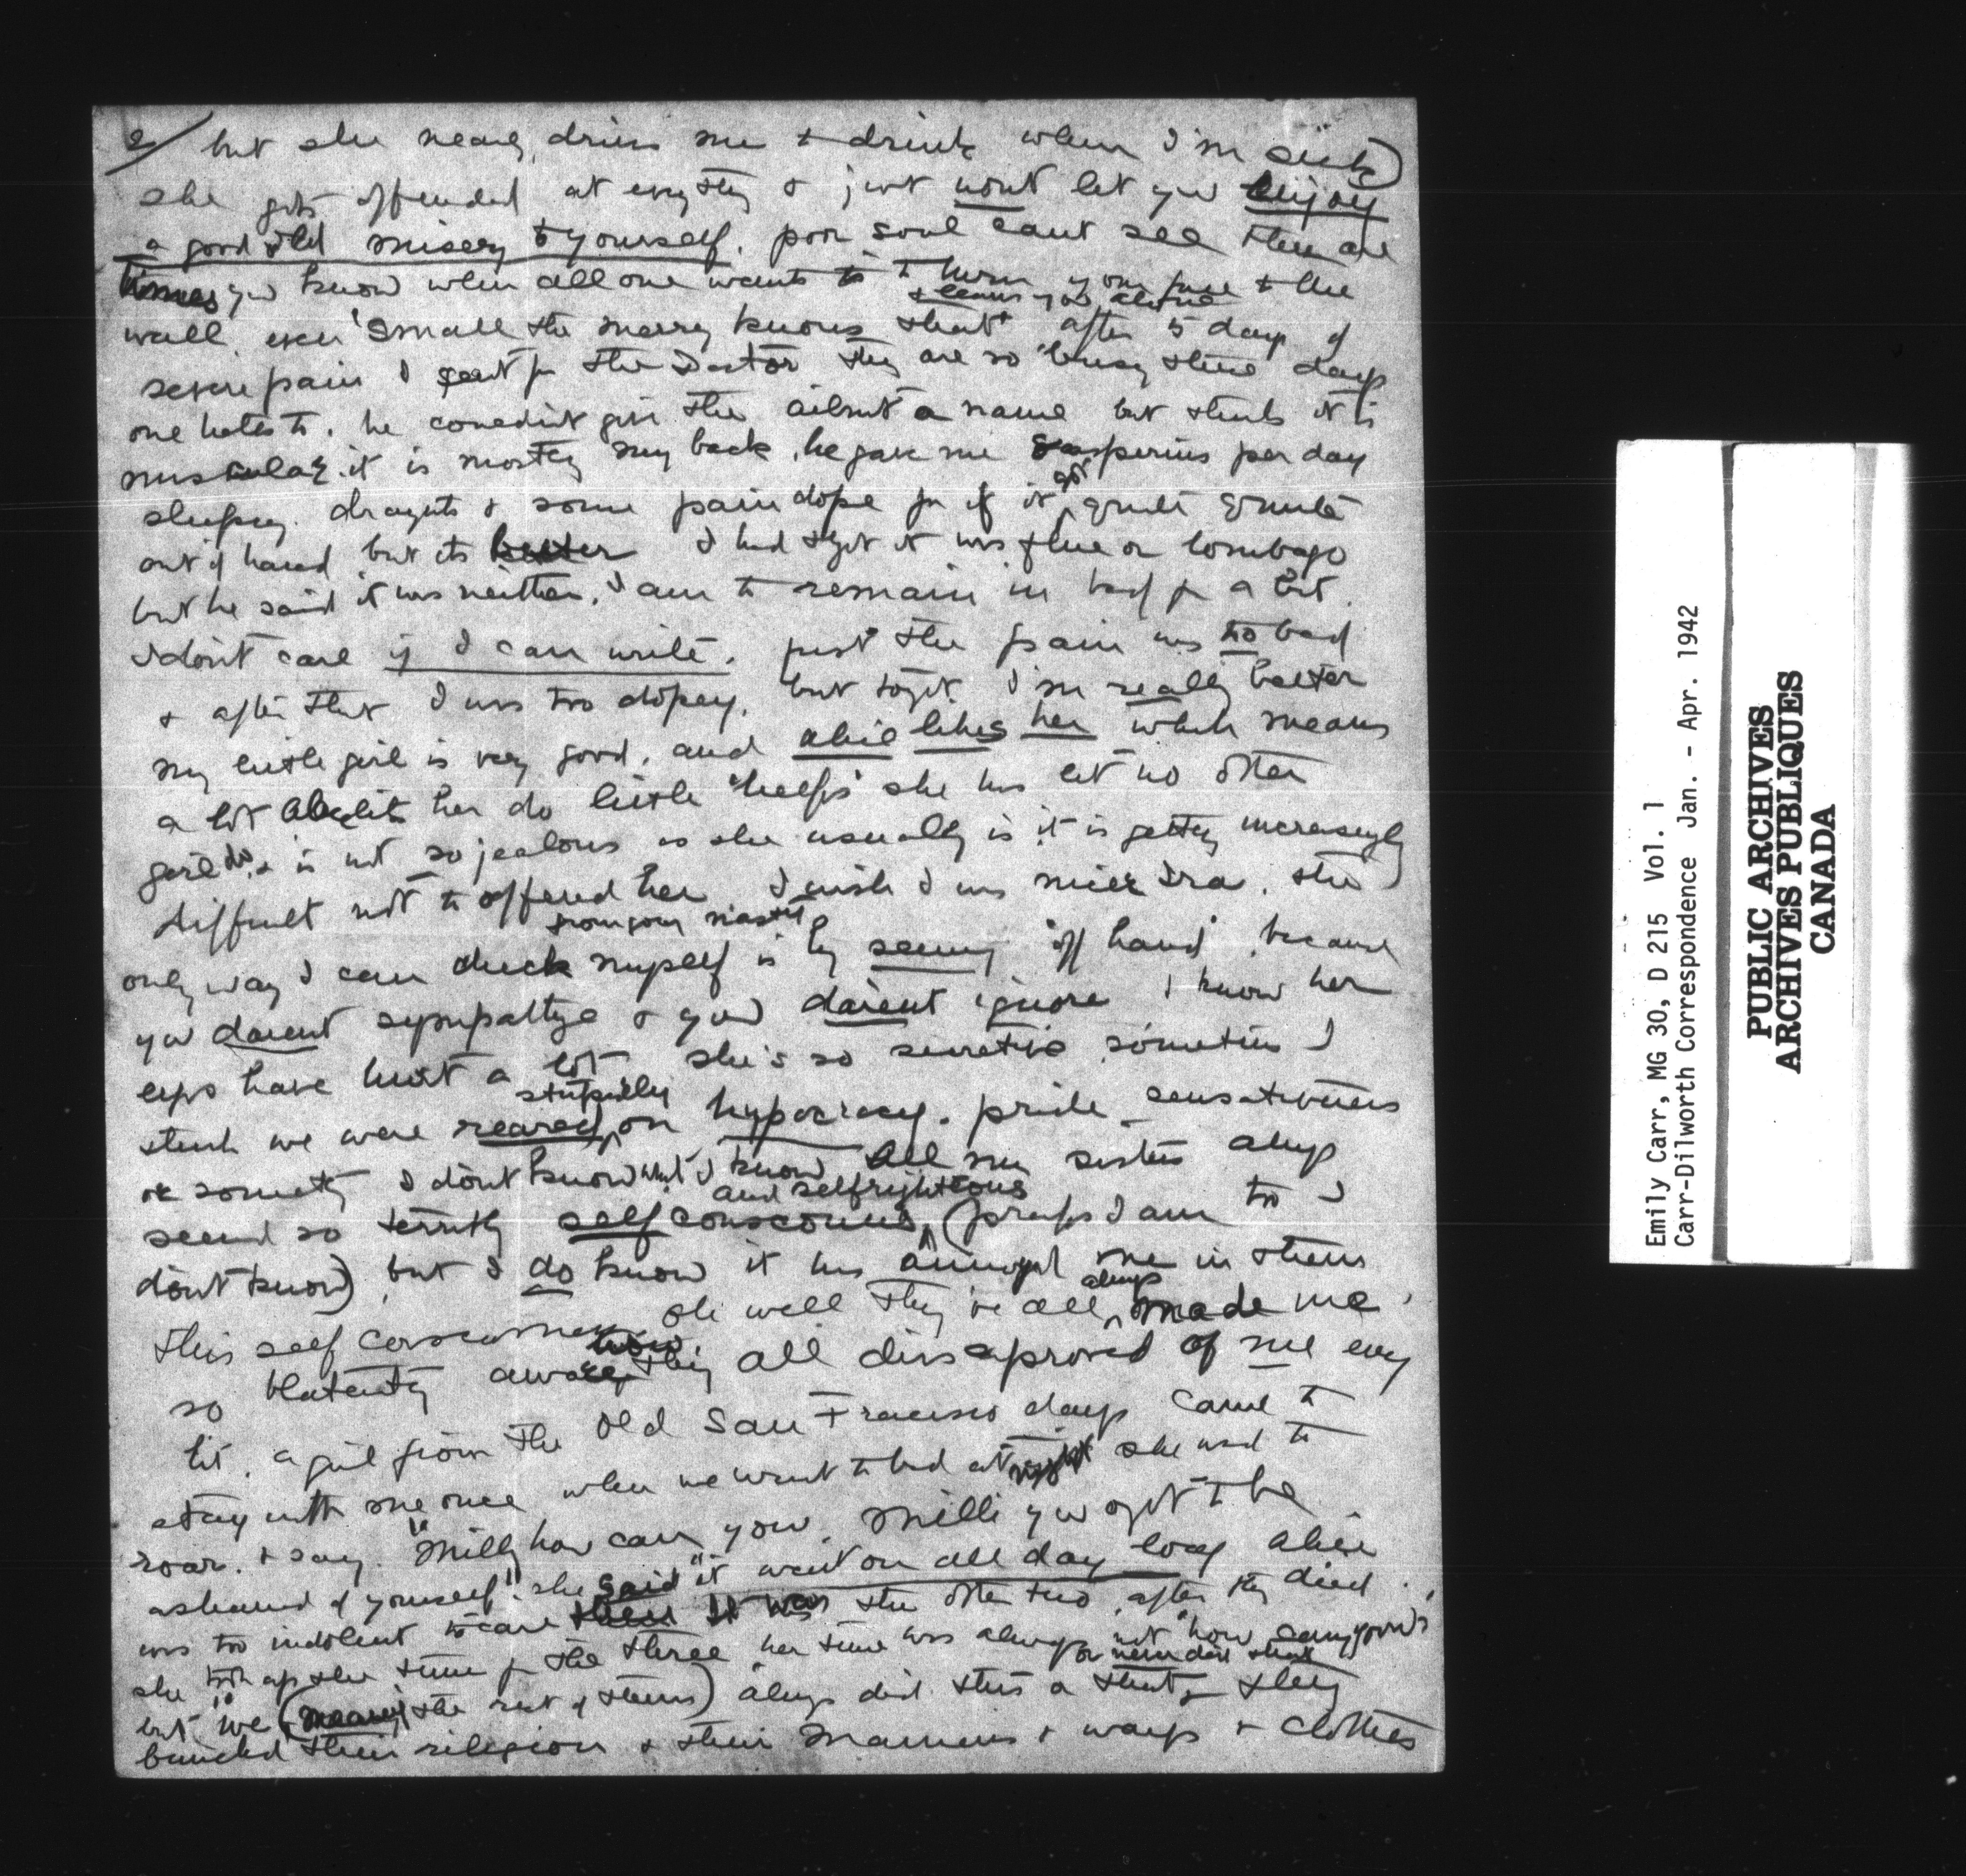 2/ but she nearly drives me to drink when I'm sick)
she gets offended at everything & just wont let you enjoy
a good old misery to yourself. poor soul cant see there are
times you know when all one wants is to turn your face to the
& leaves you alone
wall. even Small the knows that after 5 days of
severe pain I sent for the Doctor they are so busy these days
one hates to. he couldn't give the ailmt a name but thinks it is
muscular. it is mostly my back. he gave me asperins per day
sleeping draughts & some pain dope for if it got quite quite
out of hand but its better I had thot it was flue or lombago
but he said it was neither. I am to remain in bed for a bit.
I dont care if I can write. just the pain was to bad
& after that I was too dopey. but tonight I'm really better
my little girl is very good. and Alice likes her which means
a lot Alice lets her do little "helps" she has let no other
girl do. & is not so jealous as she usually is it is getting increasingly
difficult not to offend her I wish I was nicer Ira. the
only way I can check myself from being nasty is by seeming "off hand" because
you darent sympathyze & you darent ignore I know her
eyes have hurt a lot she's so secretive sometimes I
think we were reared stupidly on hypocracy. pride sensativeness
or something I dont know what I know All my sisters always
seemed so terribly self conscious and selfrightous (praps I am too I
dont know) but I do know it has annoyed me in them
this self consciousness oh well they've all always made me
so blatently aware how they all dissaproved of me every
bit. a girl from the old San Francisco days came to
stay with me once when we went to bed at night she used to
roar. & say. "Milly how can you. Milli you ought to be
ashamed of yourself" she said "it went on all day long Alice
was too indolent to care then it was the other two. after they died.
she took up the tune for the three her tune was always not "how can you's"
or never dose that
but "we (meaning the rest of them) always did this or that, they
their religion & their Manners & ways & Clothes
Emily Carr, MG 30, D 215 Vol. 1
Carr-Dilworth Correspondence Jan. - Apr. 1942
PUBLIC ARCHIVES
ARCHIVES PUBLIQUES
CANADA